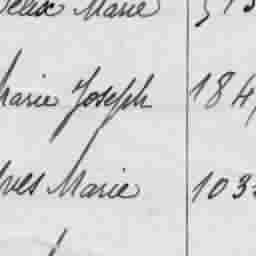 Marie
Marie Joseph 184
Yves Marie 103